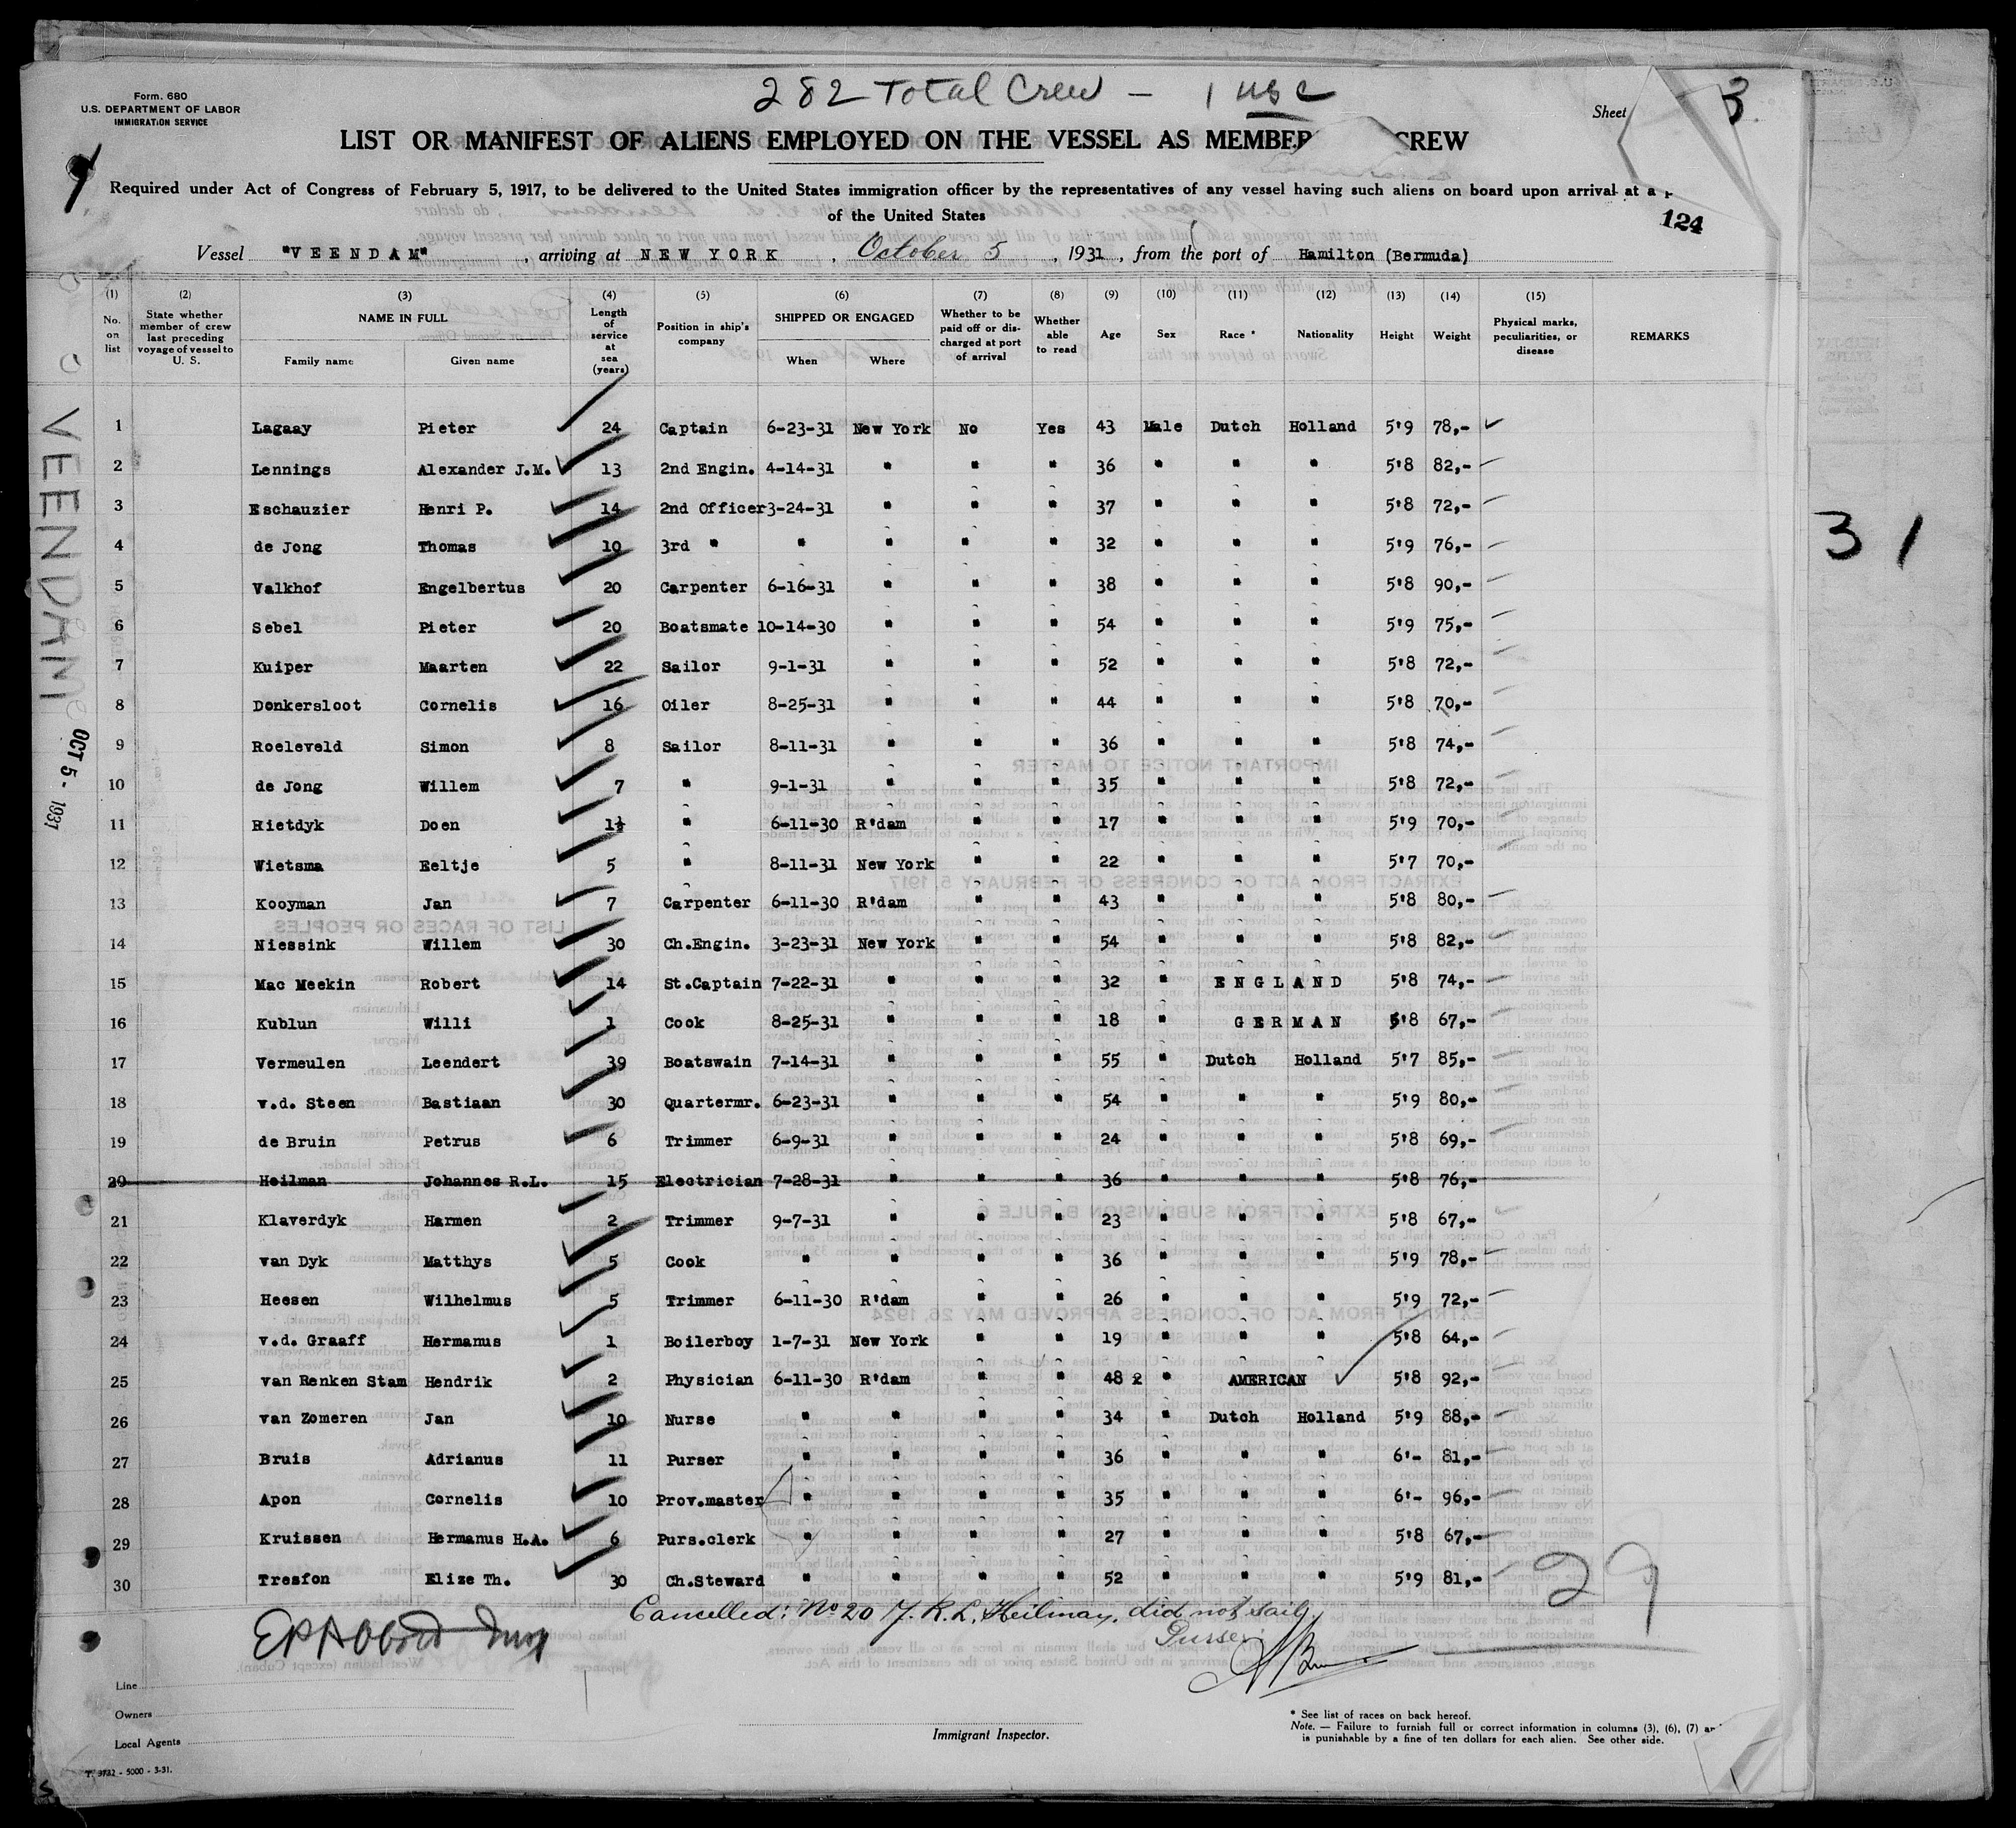 282 Total Crew - 1 USC
Form. 680
U.S. DEPARTMENT OF LABOR
IMMIGRATION SERVICE
Sheet 3
LIST OR MANIFEST OF ALIENS EMPLOYED ON THE VESSEL AS MEMBER CREW
Required under Act of Congress of February 5, 1917, to be delivered to the United States immigration officer by the representatives of any vessel having such aliens on board upon arrival at a
of the United States
124
Vessel "VEENDAM", arriving at NEW YORK, October 5, 1931, from the port of Hamilton (Bermuda)
(1) (2) (3) (4) (5) (6) (7) (8) (9) (10) (11) (12) (13) (14) (15)
No. on list | State whether member of crew last preceding voyage of vessel to U. S. | NAME IN FULL Family name Given name | Length of service at sea (years) | Position in ship's company | SHIPPED OR ENGAGED When Where | Whether to be paid off or discharged at port of arrival | Whether able to read | Age | Sex | Race * | Nationality | Height | Weight | Physical marks, peculiarities, or disease | REMARKS
1 Lagaay Pieter 24 Captain 6-23-31 New York No Yes 43 Male Dutch Holland 5'9 78,-
2 Lennings Alexander J.M. 13 2nd Engin. 4-14-31 " " " 36 " " " 5'8 82,-
3 Eschauzier Henri P. 14 2nd Officer 3-24-31 " " " 37 " " " 5'8 72,-
4 de Jong Thomas 10 3rd " " " " " 32 " " " 5'9 76,-
5 Valkhof Engelbertus 20 Carpenter 6-16-31 " " " 38 " " " 5'8 90,-
6 Sebel Pieter 20 Boatsmate 10-14-30 " " " 54 " " " 5'9 75,-
7 Kuiper Maarten 22 Sailor 9-1-31 " " " 52 " " " 5'8 72,-
8 Donkersloot Cornelis 16 Oiler 8-25-31 " " " 44 " " " 5'8 70,-
9 Roeleveld Simon 8 Sailor 8-11-31 " " " 36 " " " 5'8 74,-
10 de Jong Willem 7 " 9-1-31 " " " 35 " " " 5'8 72,-
11 Rietdyk Doen 1½ " 6-11-30 R'dam " " 17 " " " 5'9 70,-
12 Wietsma Eeltje 5 " 8-11-31 New York " " 22 " " " 5'7 70,-
13 Kooyman Jan 7 Carpenter 6-11-30 R'dam " " 43 " " " 5'8 80,-
14 Niessink Willem 30 Ch.Engin. 3-23-31 New York " " 54 " " " 5'8 82,-
15 Mac Meekin Robert 14 St.Captain 7-22-31 " " " 32 " ENGLAND 5'8 74,-
16 Kublun Willi 1 Cook 8-25-31 " " " 18 " GERMAN 5'8 67,-
17 Vermeulen Leendert 39 Boatswain 7-14-31 " " " 55 " Dutch Holland 5'7 85,-
18 v.d. Steen Bastiaan 30 Quartermr. 6-23-31 " " " 54 " " " 5'9 80,-
19 de Bruin Petrus 6 Trimmer 6-9-31 " " " 24 " " " 5'8 69,-
20 Heilman Johannes R.L. 15 Electrician 7-28-31 " " " 36 " " " 5'8 76,-
21 Klaverdyk Harmen 2 Trimmer 9-7-31 " " " 23 " " " 5'8 67,-
22 van Dyk Matthys 5 Cook " " " " 36 " " " 5'9 78,-
23 Heesen Wilhelmus 5 Trimmer 6-11-30 R'dam " " 26 " " " 5'9 72,-
24 v.d. Graaff Hermanus 1 Boilerboy 1-7-31 New York " " 19 " " " 5'8 64,-
25 van Renken Stam Hendrik 2 Physician 6-11-30 R'dam " " 48 2 " AMERICAN 5'8 92,-
26 van Zomeren Jan 10 Nurse " " " " 34 " Dutch Holland 5'9 88,-
27 Bruis Adrianus 11 Purser " " " " 36 " " " 6'- 81,-
28 Apon Cornelis 10 Prov.master " " " " 35 " " " 6'- 96,-
29 Kruissen Hermanus H.A. 6 Purs.clerk " " " " 27 " " " 5'8 67,-
30 Tresfon Elize Th. 30 Ch.Steward " " " " 52 " " " 5'9 81,-
29
Cancelled: No 20 J. R. L. Heilman, did not sail.
Purser:
Line
Owners
Local Agents
Immigrant Inspector.
* See list of races on back hereof.
Note. — Failure to furnish full or correct information in columns (3), (6), (7)
is punishable by a fine of ten dollars for each alien. See other side.
T. 3732 - 5000 - 3-31.
VEENDAM
OCT 5 - 1931
31